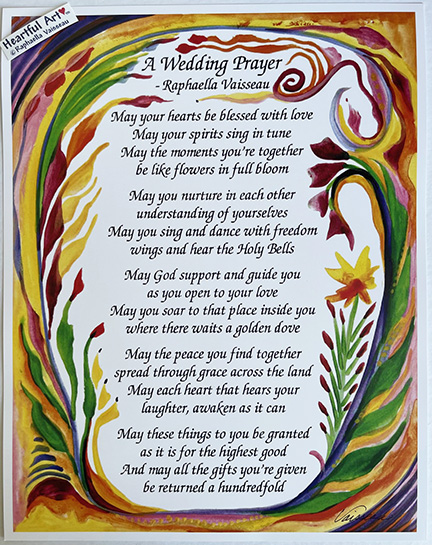 Heartful Art™
©Raphaella Vaisseau
A Wedding Prayer
- Raphaella Vaisseau
May your hearts be blessed with love
May your spirits sing in tune
May the moments you're together
be like flowers in full bloom
May you nurture in each other
understanding of yourselves
May you sing and dance with freedom
wings and hear the Holy Bells
May God support and guide you
as you open to your love
May you soar to that place inside you
where there waits a golden dove
May the peace you find together
spread through grace across the land
May each heart that hears your
laughter, awaken as it can
May these things to you be granted
as it is for the highest good
And may all the gifts you're given
be returned a hundredfold